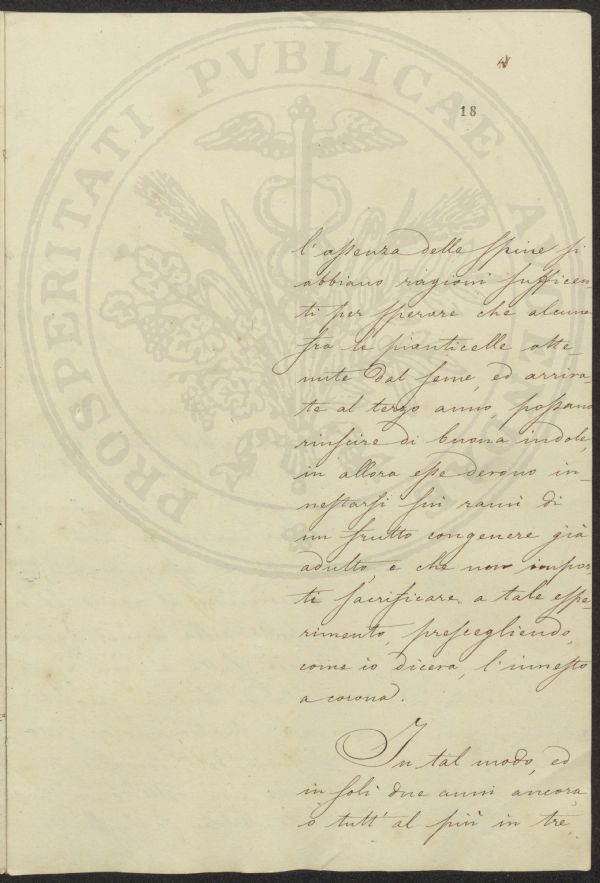 18
PROSPERITATI PVBLICAE
l'assenza delle spine si
abbiano ragioni sufficen-
ti per sperare che alcune
fra le pianticelle otte-
nute dal seme, ed arriva-
te al terzo anno, possano
riuscire di buona indole,
in allora esse devono in-
nestarsi sui rami di
un frutto congenere già
adulto, e che non impor-
ti sacrificare a tale espe-
rimento, prescegliendo,
come io diceva, l'innesto
a corona.
In tal modo, ed
in soli due anni ancora,
o tutt'al più in tre